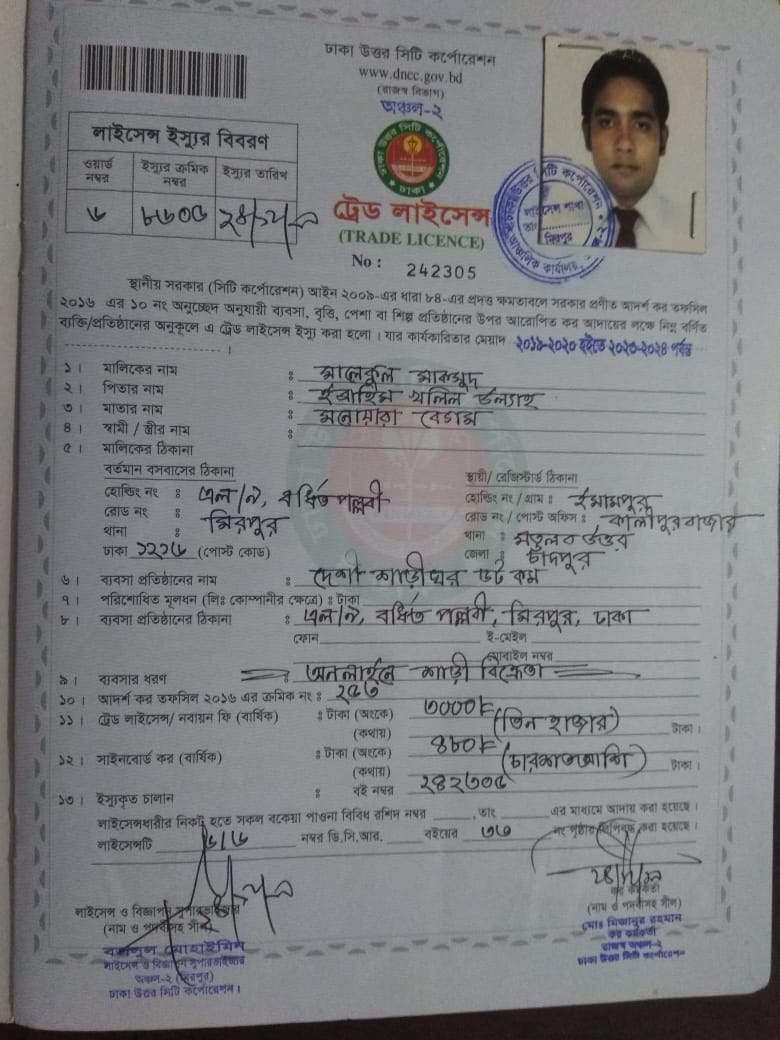 ঢাকা উত্তর সিটি কর্পোরেশন
www.dncc.gov.bd
(রাজস্ব বিভাগ)
অঞ্চল-২
লাইসেন্স ইস্যুর বিবরণ
ওয়ার্ড নম্বর
ইস্যুর ক্রমিক নম্বর
ইস্যুর তারিখ
৬
৮৬০৫
ট্রেড লাইসেন্স
(TRADE LICENCE)
No : 242305
স্থানীয় সরকার (সিটি কর্পোরেশন) আইন ২০০৯-এর ধারা ৮৪-এর প্রদত্ত ক্ষমতাবলে সরকার প্রণীত আদর্শ কর তফসিল
২০১৬ এর ১০ নং অনুচ্ছেদ অনুযায়ী ব্যবসা, বৃত্তি, পেশা বা শিল্প প্রতিষ্ঠানের উপর আরোপিত কর আদায়ের লক্ষে নিম্ন বর্ণিত
ব্যক্তি/প্রতিষ্ঠানের অনুকূলে এ ট্রেড লাইসেন্স ইস্যু করা হলো। যার কার্যকারিতার মেয়াদ ২০১৯-২০২০ হইতে ২০২৩-২০২৪ পর্যন্ত
১। মালিকের নাম : মালেকুল মাকসুদ
২। পিতার নাম : ইব্রাহিম খলিল উল্যাহ
৩। মাতার নাম : মনোয়ারা বেগম
৪। স্বামী / স্ত্রীর নাম :
৫। মালিকের ঠিকানা
বর্তমান বসবাসের ঠিকানা
হোল্ডিং নং : এল/৯, বর্ধিত পল্লবী
রোড নং :
থানা : মিরপুর
ঢাকা ১২১৬ (পোস্ট কোড)
স্থায়ী/ রেজিস্টার্ড ঠিকানা
হোল্ডিং নং / গ্রাম : ইমামপুর
রোড নং / পোস্ট অফিস : কালীপুর বাজার
থানা : মতলব উত্তর
জেলা : চাঁদপুর
৬। ব্যবসা প্রতিষ্ঠানের নাম : দেশী শাড়ীঘর ডট কম
৭। পরিশোধিত মূলধন (লিঃ কোম্পানীর ক্ষেত্রে) : টাকা
৮। ব্যবসা প্রতিষ্ঠানের ঠিকানা : এল/৯, বর্ধিত পল্লবী, মিরপুর, ঢাকা
ফোন ই-মেইল
মোবাইল নম্বর
৯। ব্যবসার ধরণ : অনলাইনে শাড়ী বিক্রেতা
১০। আদর্শ কর তফসিল ২০১৬ এর ক্রমিক নং : ২৫৩
১১। ট্রেড লাইসেন্স/ নবায়ন ফি (বার্ষিক) : টাকা (অংকে) ৩০০০/-
(কথায়) (তিন হাজার) টাকা।
১২। সাইনবোর্ড কর (বার্ষিক) : টাকা (অংকে) ৪৮০/-
(কথায়) (চারশত আশি) টাকা।
১৩। ইস্যুকৃত চালান : বই নম্বর ২৪২৩০৫
লাইসেন্সধারীর নিকট হতে সকল বকেয়া পাওনা বিবিধ রশিদ নম্বর , তাং এর মাধ্যমে আদায় করা হয়েছে।
লাইসেন্সটি ৬/৬ নম্বর ডি.সি.আর. বইয়ের ৩৩ নং পৃষ্ঠায় লিপিবদ্ধ করা হয়েছে।
লাইসেন্স ও বিজ্ঞাপন সুপারভাইজার
(নাম ও পদবীসহ সীল)
লাইসেন্স ও বিজ্ঞাপন সুপারভাইজার
অঞ্চল-২ (মিরপুর)
ঢাকা উত্তর সিটি কর্পোরেশন।
কর কর্মকর্তা
(নাম ও পদবীসহ সীল)
মোঃ মিজানুর রহমান
কর কর্মকর্তা
রাজস্ব অঞ্চল-২
ঢাকা উত্তর সিটি কর্পোরেশন